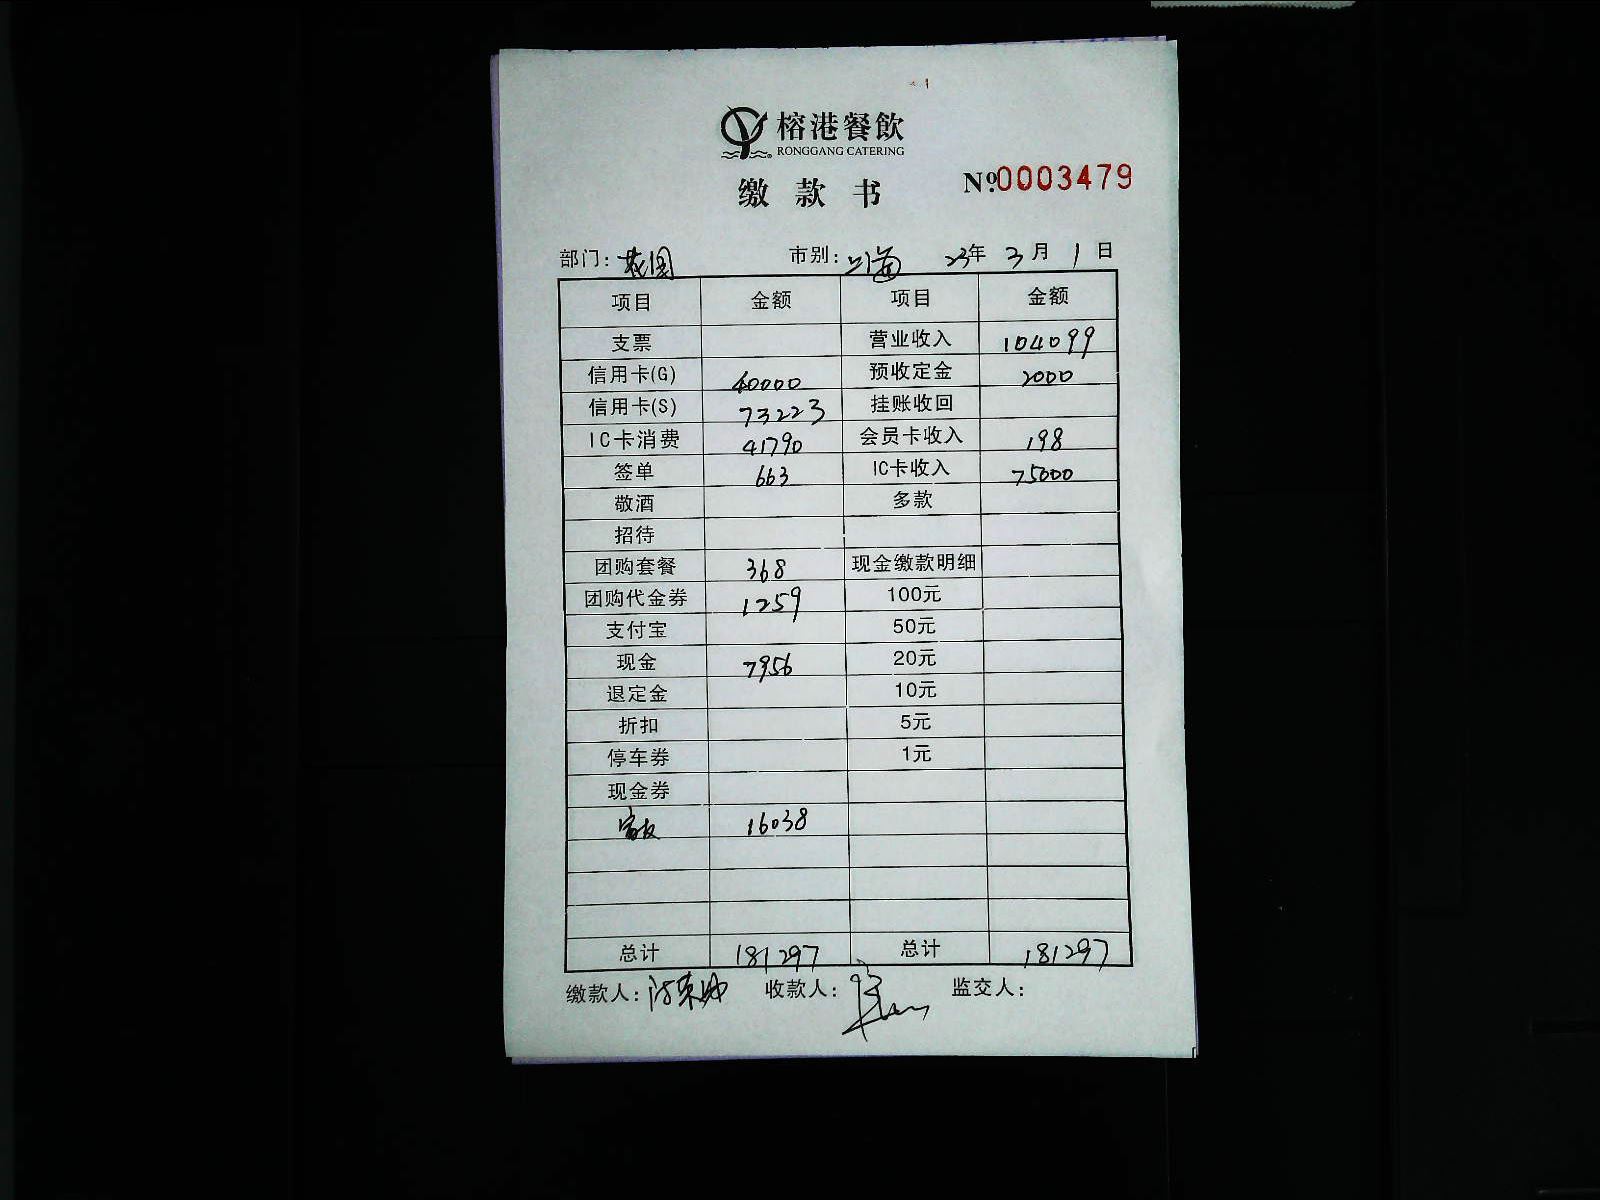 榕港餐飲
RONGGANG CATERING
缴款书 №0003479
部门：花园 市别：上海 23年 3月 1日
项目 金额 项目 金额
支票 营业收入 104099
信用卡(G) 40000 预收定金 2000
信用卡(S) 73223 挂账收回
IC卡消费 41790 会员卡收入 198
签单 663 IC卡收入 75000
敬酒 多款
招待
团购套餐 368 现金缴款明细
团购代金券 1259 100元
支付宝 50元
现金 7956 20元
退定金 10元
折扣 5元
停车券 1元
现金券
16038
总计 181297 总计 181297
缴款人： 收款人： 监交人：